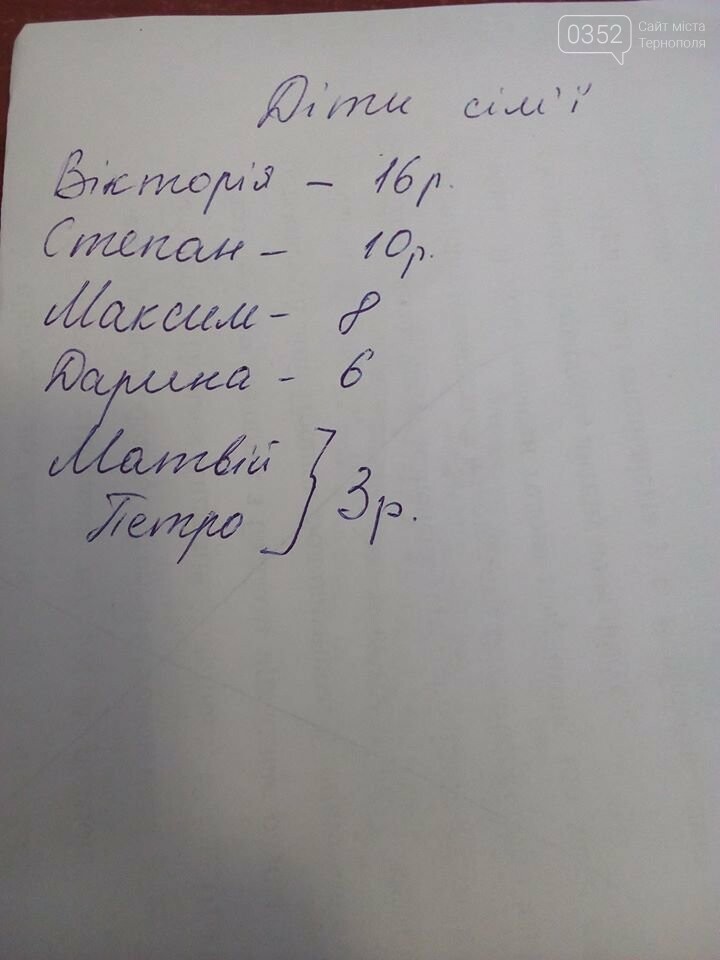 0352 Сайт міста
Тернополя
Діти сім'ї
Вікторія - 16р.
Степан - 10р.
Максим - 8
Дарина - 6
Матвій
Петро } 3р.